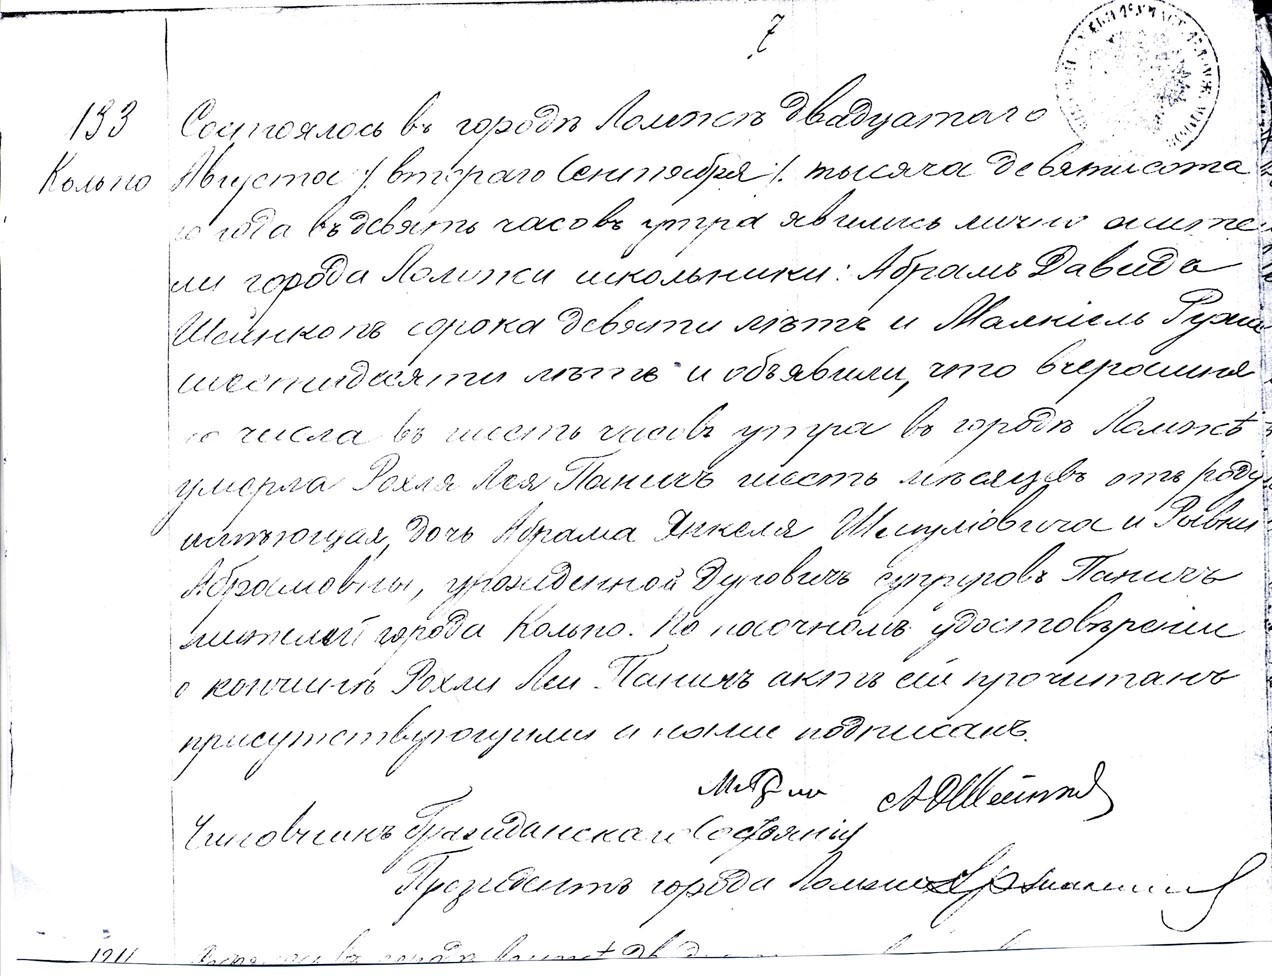 7
133
Кольно
Состоялось въ городѣ Ломжѣ двадцатаго
Августа /: втораго Сентября :/ тысяча девятисота
го года въ девять часовъ утра явились лично жите
ли города Ломжи школьники: Абрамъ Давидъ
Шейнкопъ сорока девяти лѣтъ и Малкіель
шестидесяти лѣтъ и объявили, что вчерашня
го числа въ шесть часовъ утра въ городѣ Ломжѣ
умерла Рохля Лея Паничъ шесть мѣсяцевъ отъ роду
имѣющая, дочь Абрама Янкеля Шмуліовича и Рывки
Абрамовны, урожденной супруговъ Паничъ
жителей города Кольно. По наочномъ удостовѣреніи
о кончинѣ Рохли Леи Паничъ актъ сей прочитанъ
присутствующими и нами подписанъ.
Чиновникъ Гражданскаго Состоянія
Президентъ города Ломжи